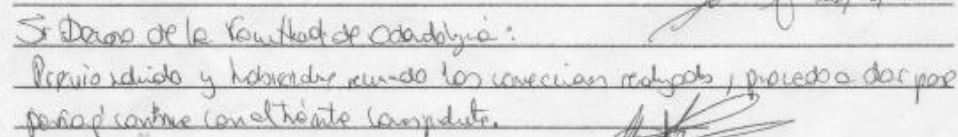 Sr Decano de la Facultad de Odontología:
Previo saludo y habiendose reunido las correcciones realizado, procedo a dar pase
para q' continue con el trámite correspondiente.